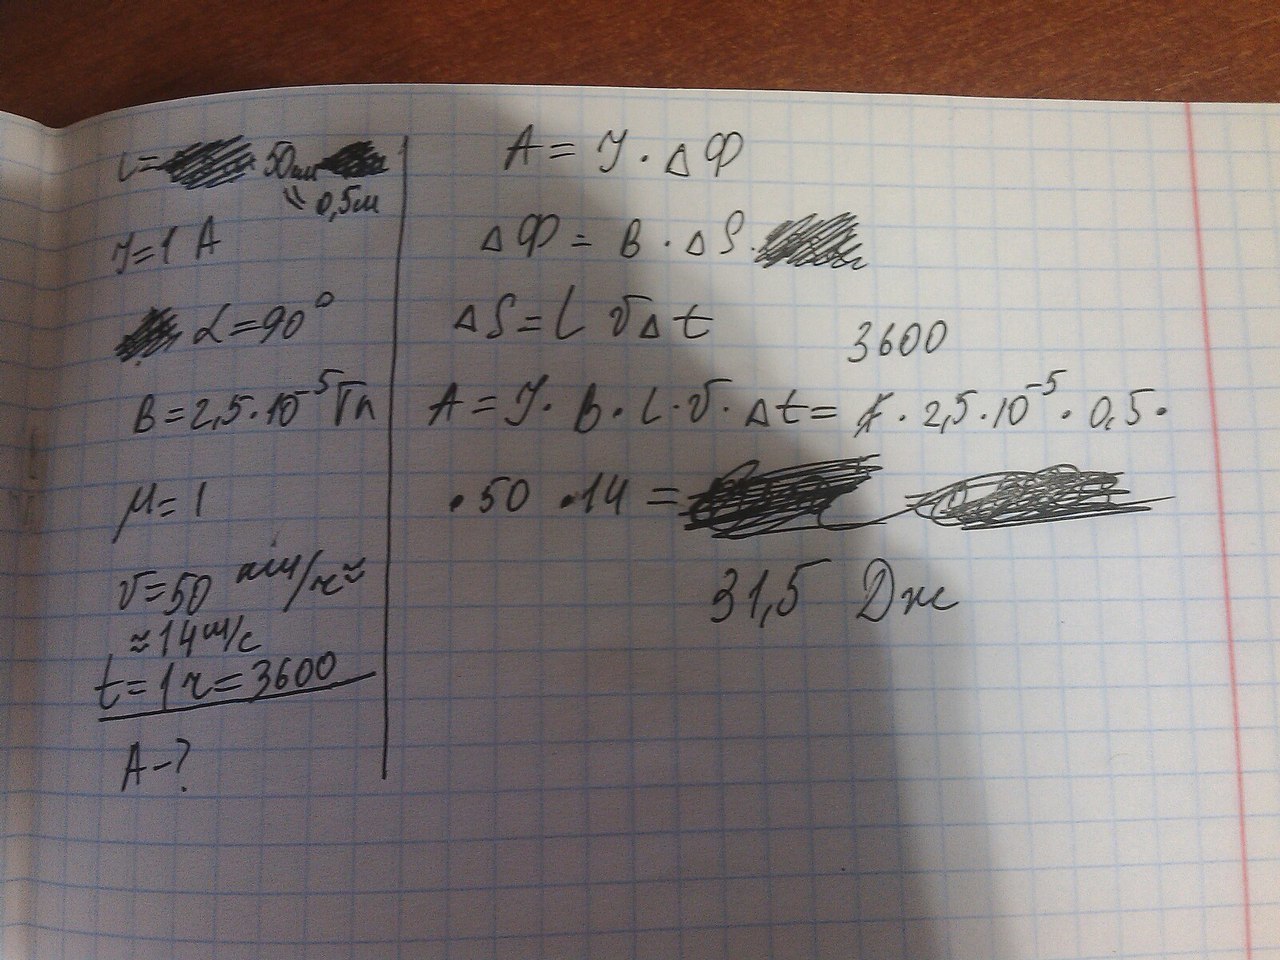 L = 50 см
= 0,5 м
J = 1 А
α = 90°
B = 2,5 · 10⁻⁵ Тл
μ = 1
v = 50 км/ч ≈
≈ 14 м/с
t = 1 ч = 3600
A - ?
A = J · Δ Φ
Δ Φ = B · Δ S ·
Δ S = L v Δ t
3600
A = J · B · L · v · Δ t = 1 · 2,5 · 10⁻⁵ · 0,5 ·
· 50 · 14 =
31,5 Дж